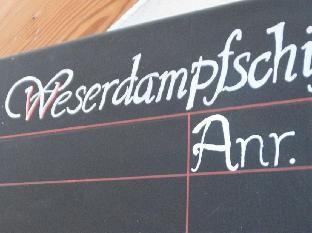 Weserdampfschi
Anr.